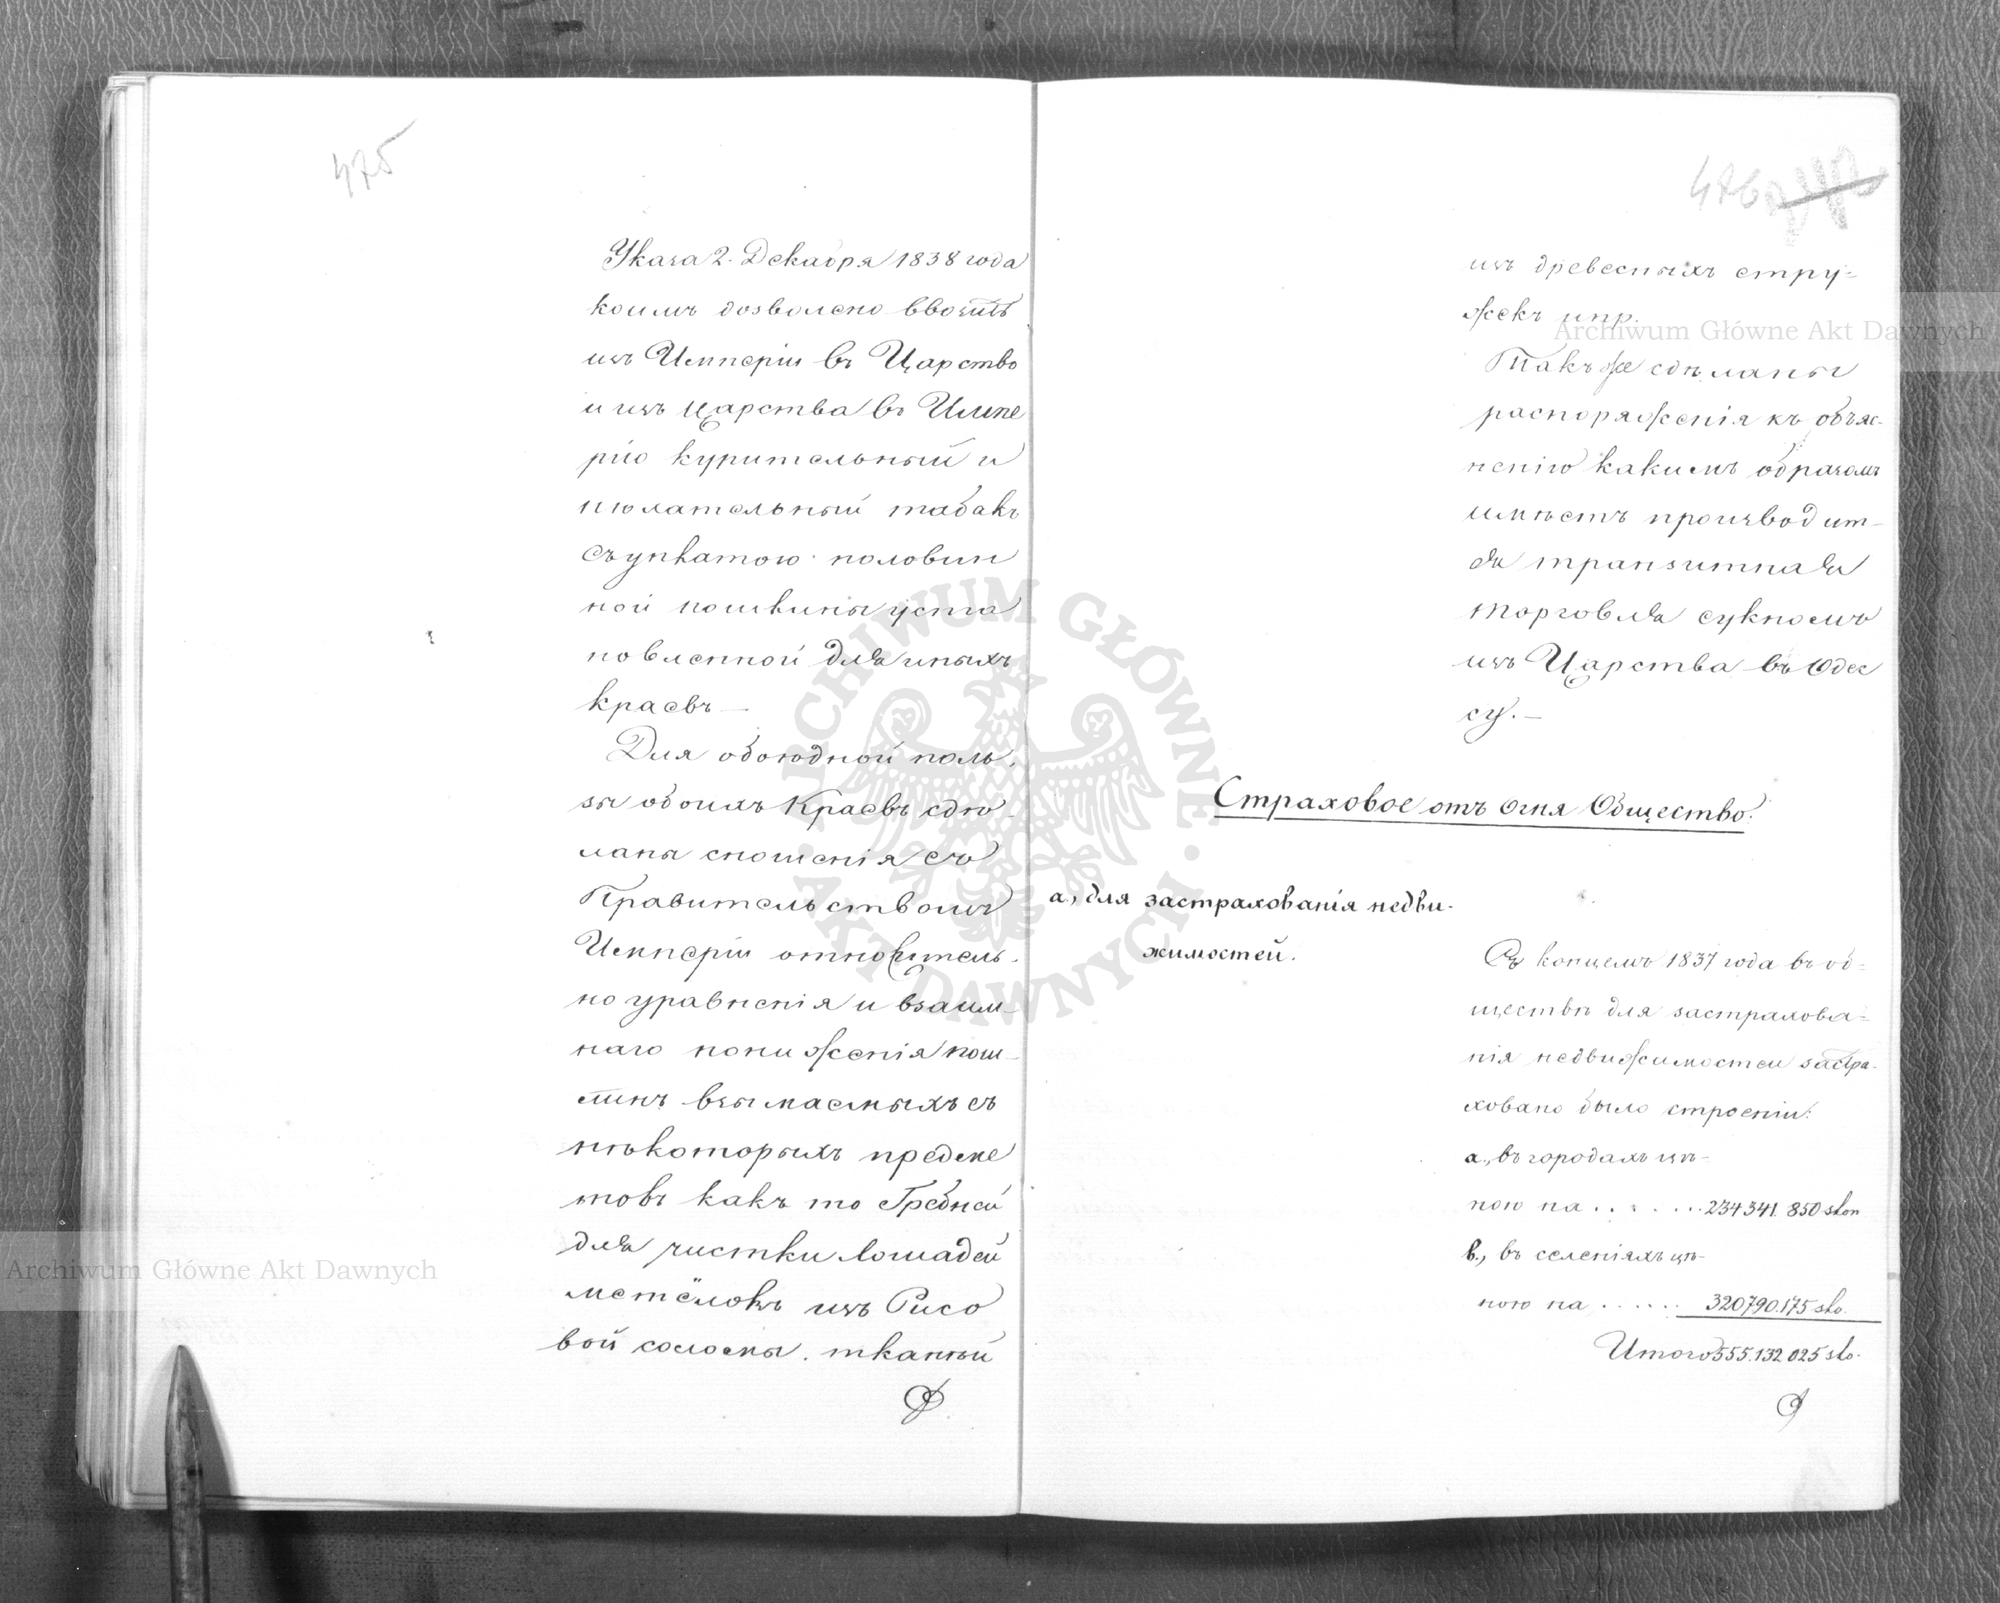 475
Указа 2. Декабря 1838 года
коимъ дозволено ввозить
изъ Имперіи въ Царство
и изъ Царства въ Импе
рію курительный и
нюхательный табакъ
съ уплатою половин
ной пошлины уста
новленной для иныхъ
краевъ —
Для обоюдной поль-
зы обоихъ Краевъ сдѣ-
ланы сношенія съ
Правительствомъ
Имперіи относитель-
но уравненія и взаим-
наго пониженія пош-
линъ взымаемыхъ съ
нѣкоторыхъ предме
товъ какъ то Гребней
для чистки лошадей
метёлокъ изъ Рисо
вой соломы. тканей
476
изъ древесныхъ стру-
жекъ и пр.
Такъ же сдѣланы
распоряженія къ объяс-
ненію какимъ образомъ
имѣетъ производит-
ся транзитная
торговля сукномъ
изъ Царства въ Одес
су. —
Страховое отъ Огня Общество.
а., для застрахованія недви-
жимостей.
Съ концемъ 1837 года въ об-
ществѣ для застрахова-
нія недвижимостей застра-
ховано было строеній:
а., въ городахъ цѣ-
ною на . . . . . . . 234 341. 850 złоп
в., въ селеніяхъ цѣ-
ною на . . . . . . 320790.175 zło.
Итого 555.132 025 zło.
Archiwum Główne Akt Dawnych
Archiwum Główne Akt Dawnych
ARCHIWUM GŁÓWNE · AKT DAWNYCH ·